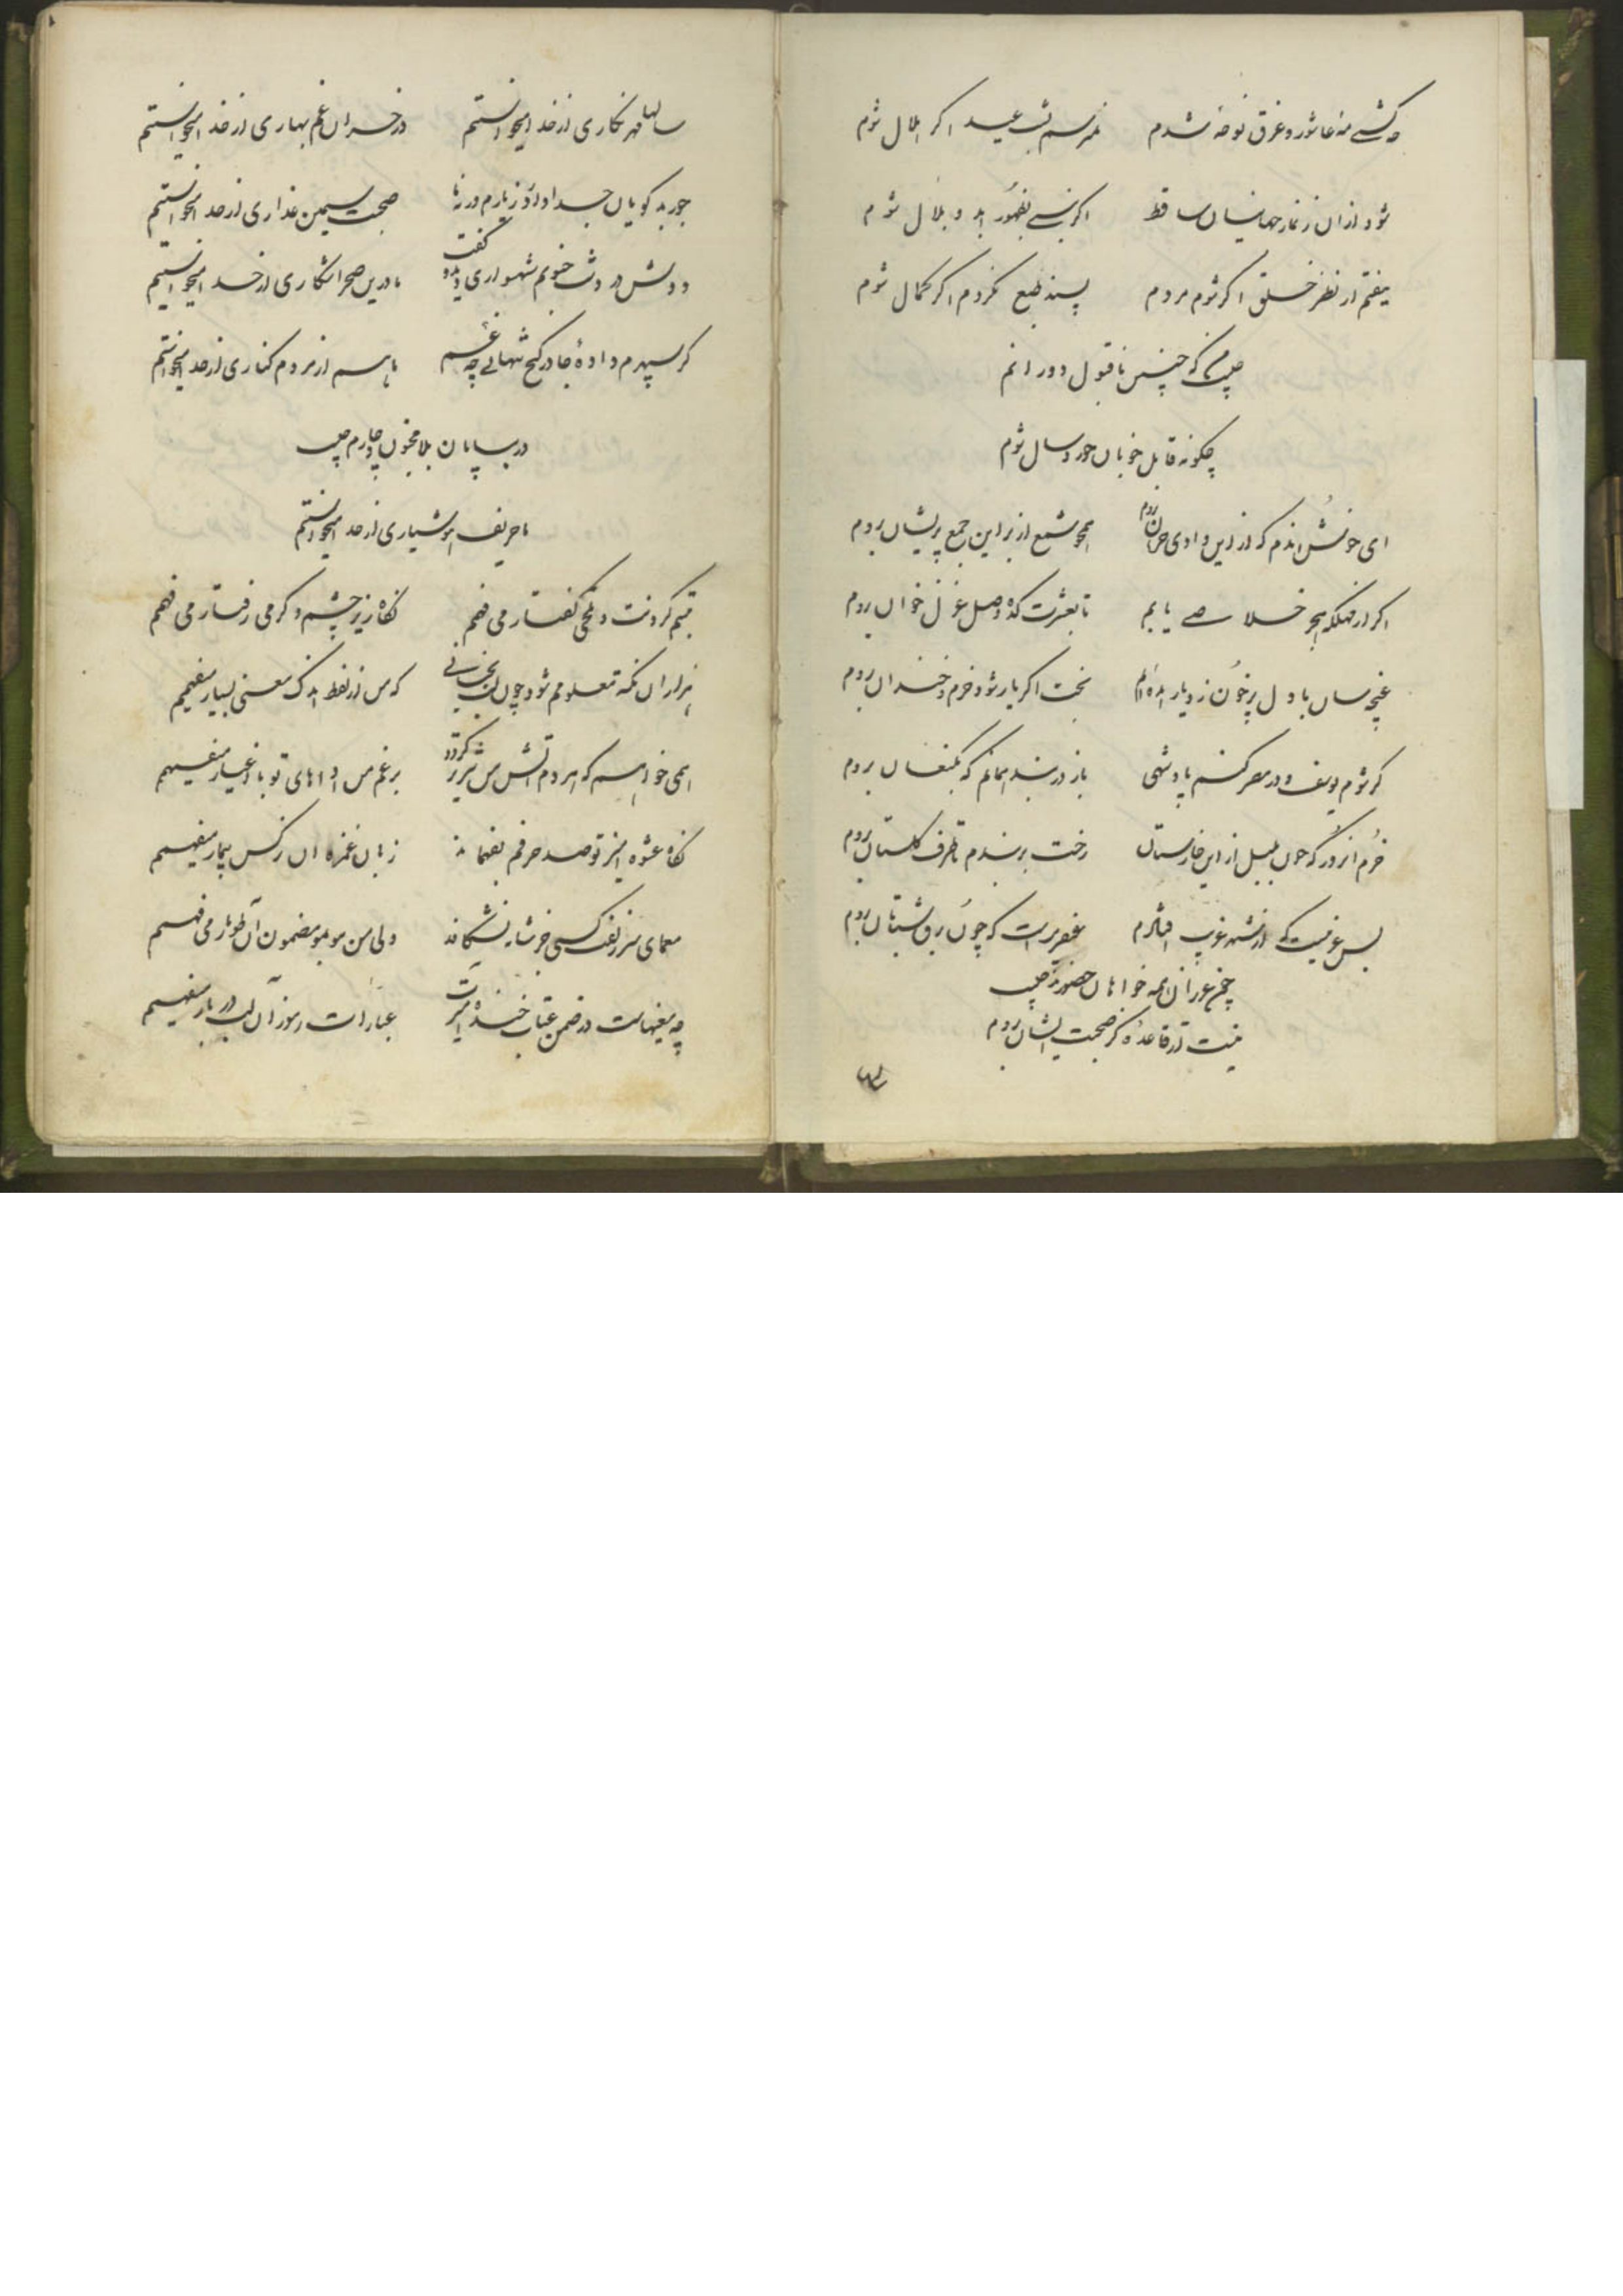 چه کشتی مه عاشور و غرق نوحه شدم نمیرسم بشب عید اگر هلال شوم
شود اذان ز نماز جهانیان ساقط اگر بظهور آید و بلال شوم
بیفتم از نظر خلق اگر شوم مردم پسند طبع نگردم اگر کمال شوم
که چنین ناقبول دورانم
چگونه قابل خوبان خورد سال شوم
ای خوش اندم که ازین وادی حرمان بروم همچو شمع از بر این جمع پریشان بروم
اگر از مهلکه هجر خلاصی یابم تا بعشرتکده وصل غزل خوان بروم
غنچه سان با دل پرخون ز دیار آمده‌ام بخت اگر یار شود خرم و خندان بروم
گر شوم یوسف و در مصر کنم پادشهی باز در بند همانم که بکنعان بروم
خرم انروز که چون بلبل از این خارستان رخت بربندم تا طرف گلستان بروم
بس غمیست که از شهر غریب عصریست که چون برق شتابان بروم
همه خواهان حضورند
نیست در قاعده کز صحبت ایشان بروم
سالها مهر نگاری از خدا میخواستم در خزان غم بهاری از خدا میخواستم
جور بدگویان جدا ز یارم ورنه ما صحبت سیمین عذاری از خدا میخواستم
دوش در دشت خونم شهسواری دید و گفت ما درین صحرا شکاری از خدا میخواستیم
گر سپهرم داده جا در کنج تنهایی چه غم ما هم از مردم کناری از خدا میخواستم
در بیابان بلا مجنون دچارم
با حریف هوشیاری از خدا میخواستم
تبسم کردنت و تلخی گفتار می فهم نگاه زیر چشم و گرمی رفتار می فهم
هزاران نکته معلومم شود چون لب بجنبانی که من از لفظ اندک معنی بسیار میفهمم
همی خواهم که هر دم آتش من تیزتر گردد برغم من اداهای تو با اغیار میفهمم
نگاه عشوه آمیز تو صد حرفم بفهماند زبان غمزه آن نرگس بیمار میفهمم
معمای سر زلفت کسی جز شانه نشکافد ولی من مو بمو مضمون آن طومار می فهمم
چه معنیهاست در ضمن عتاب خنده آمیزت عبارات رموز آن لب دربار میفهمم